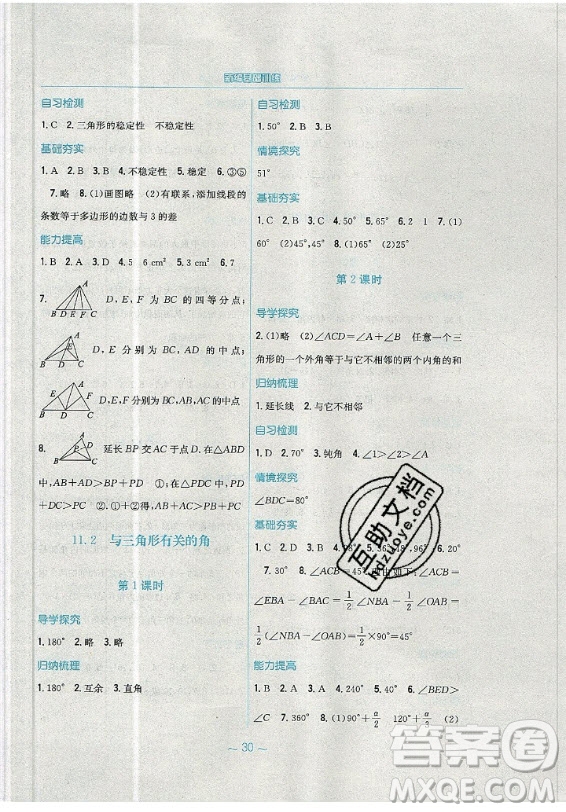 新编基础训练
自习检测
1. C 2. 三角形的稳定性 不稳定性
基础夯实
1. A 2. B 3. B 4. 不稳定性 5. 稳定 6. ③⑤
7. 略 8. (1)画图略 (2)有联系,添加线段的
条数等于多边形的边数与3的差
能力提高
1. B 2. A 3. D 4. 5 6 cm² 5. 3 cm² 6. 7
7. D,E,F为BC的四等分点;
A
B D E F C
D,E分别为BC,AB的中点;
A
E
B D C
D,E,F分别为BC,AB,AC的中点
A
E F
B D C
8. 延长BP交AC于点D. 在△ABD
A
P D
B C
中,AB+AD>BP+PD ① 在△PDC中,PD+
DC>PC ②. ①+②得,AB+AC>PB+PC
11.2 与三角形有关的角
第1课时
导学探究
1. 180° 2. 略 3. 略
归纳梳理
1. 180° 2. 互余 3. 直角
自习检测
1. 50° 2. B 3. B
情境探究
51°
基础夯实
1. C 2. B 3. D 4. 50° 5. 65° 6. 2 1 7. (1)
60° (2)45° 8. (1)65° (2)25°
第2课时
导学探究
2. (1)略 (2)∠ACD=∠A+∠B 任意一个三
角形的一个外角等于与它不相邻的两个内角的和
归纳梳理
1. 延长线 2. 与它不相邻
自习检测
1. D 2. 70° 3. 钝角 4. ∠1>∠2>∠A
情境探究
∠BDC=50°
基础夯实
1. C 2. D 3. 4. 98° 5. 18, 96°
7. 30° 8. ∠C=45° 理由如下:∠C=
∠EBA-∠BAC=1/2∠NBA-1/2∠OAB=
1/2(∠NBA-∠OAB)=1/2×90°=45°
能力提高
1. B 2. B 3. A 4. 240° 5. 40° 6. ∠BED>
∠C 7. 360° 8. (1)90°+α/2 120°+α/3 (2)
~ 30 ~
互助文档
hdzuoye.com
答案圈
MXQE.COM